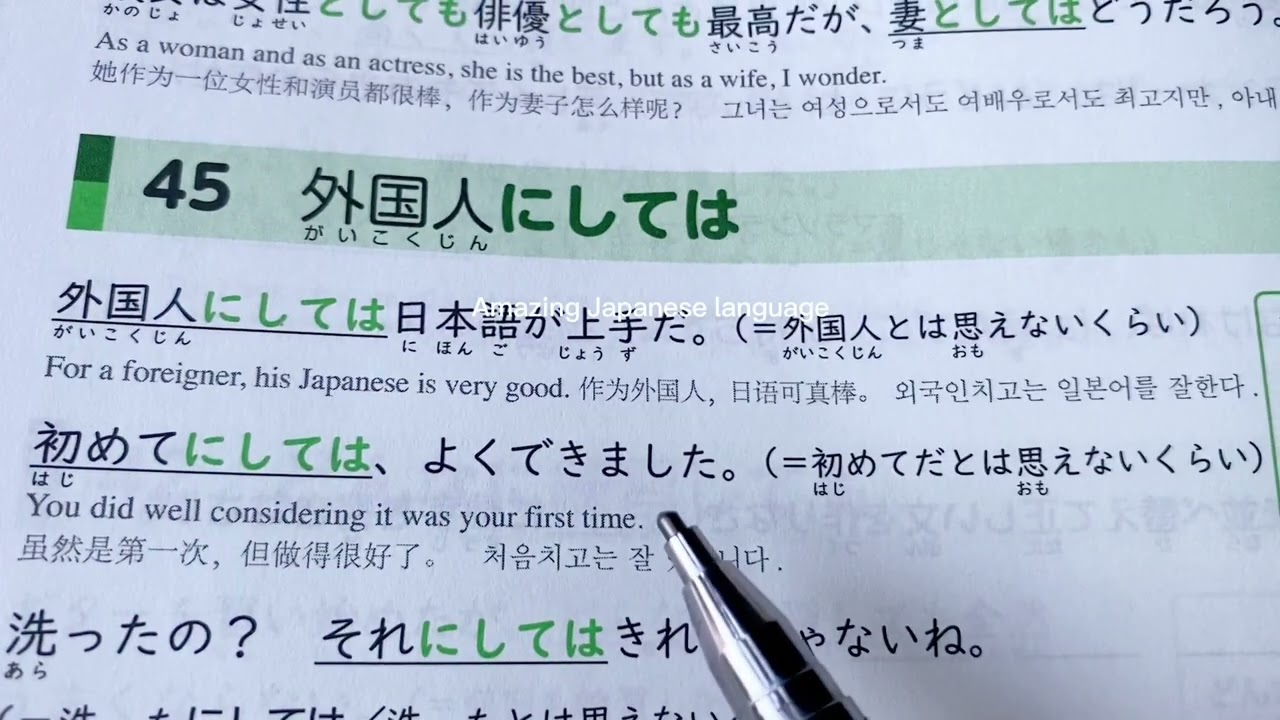 としても俳優としても最高だが、妻としてはどうだろう。
かのじょ じょせい はいゆう さいこう つま
As a woman and as an actress, she is the best, but as a wife, I wonder.
她作为一位女性和演员都很棒，作为妻子怎么样呢？ 그녀는 여성으로서도 여배우로서도 최고지만, 아내
45 外国人にしては
がいこくじん
外国人にしては日本語が上手だ。（＝外国人とは思えないくらい）
がいこくじん に ほん ご じょう ず がいこくじん おも
Amazing Japanese language
For a foreigner, his Japanese is very good. 作为外国人，日语可真棒。 외국인치고는 일본어를 잘한다.
初めてにしては、よくできました。（＝初めてだとは思えないくらい）
はじ はじ おも
You did well considering it was your first time.
虽然是第一次，但做得很好了。 처음치고는 잘 니다.
洗ったの？ それにしてはきれ ゃないね。
あら